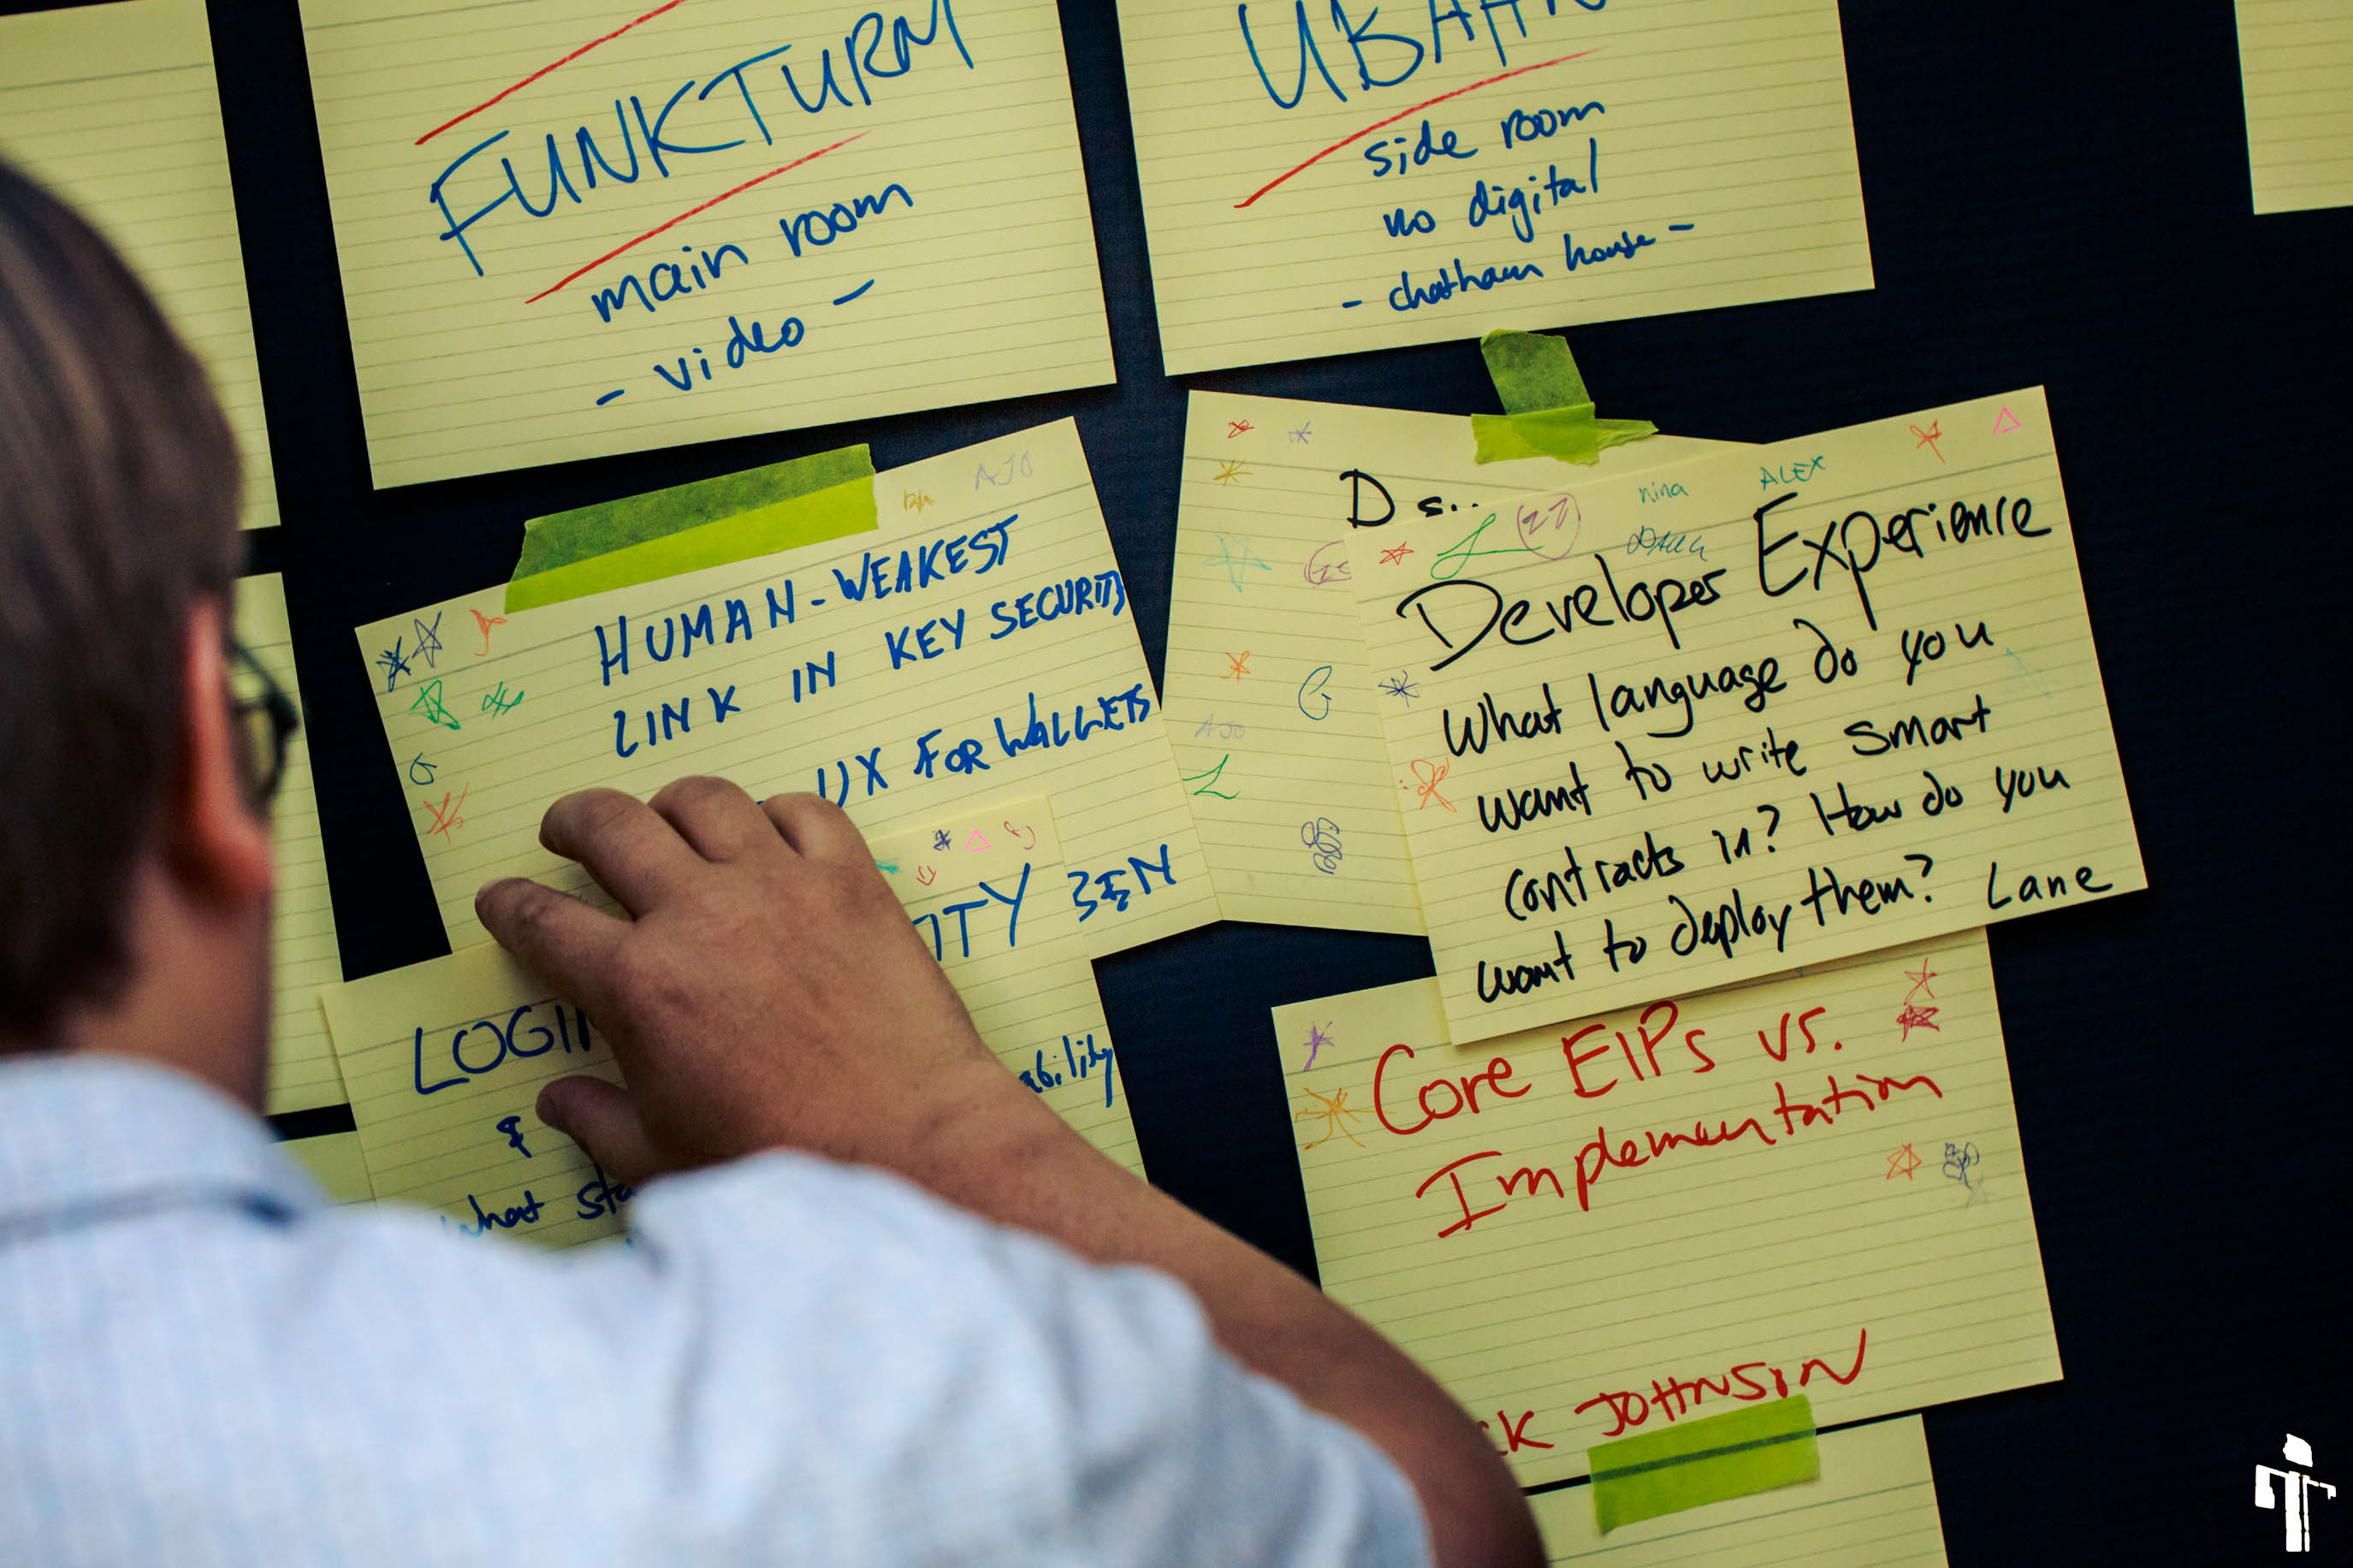 FUNKTURM
main room
- video -
side room
no digital
- chatham house -
AJO
HUMAN-WEAKEST
LINK IN KEY SECURITY
UX FOR WALLETS
BEN
G
LOGIN
&
what
Ds..
G
AJO
L
nina
ALEX
L
27
Developer Experience
What language do you
want to write smart
contracts in? How do you
want to deploy them? Lane
Core EIPs vs.
Implementation
JOHNSON